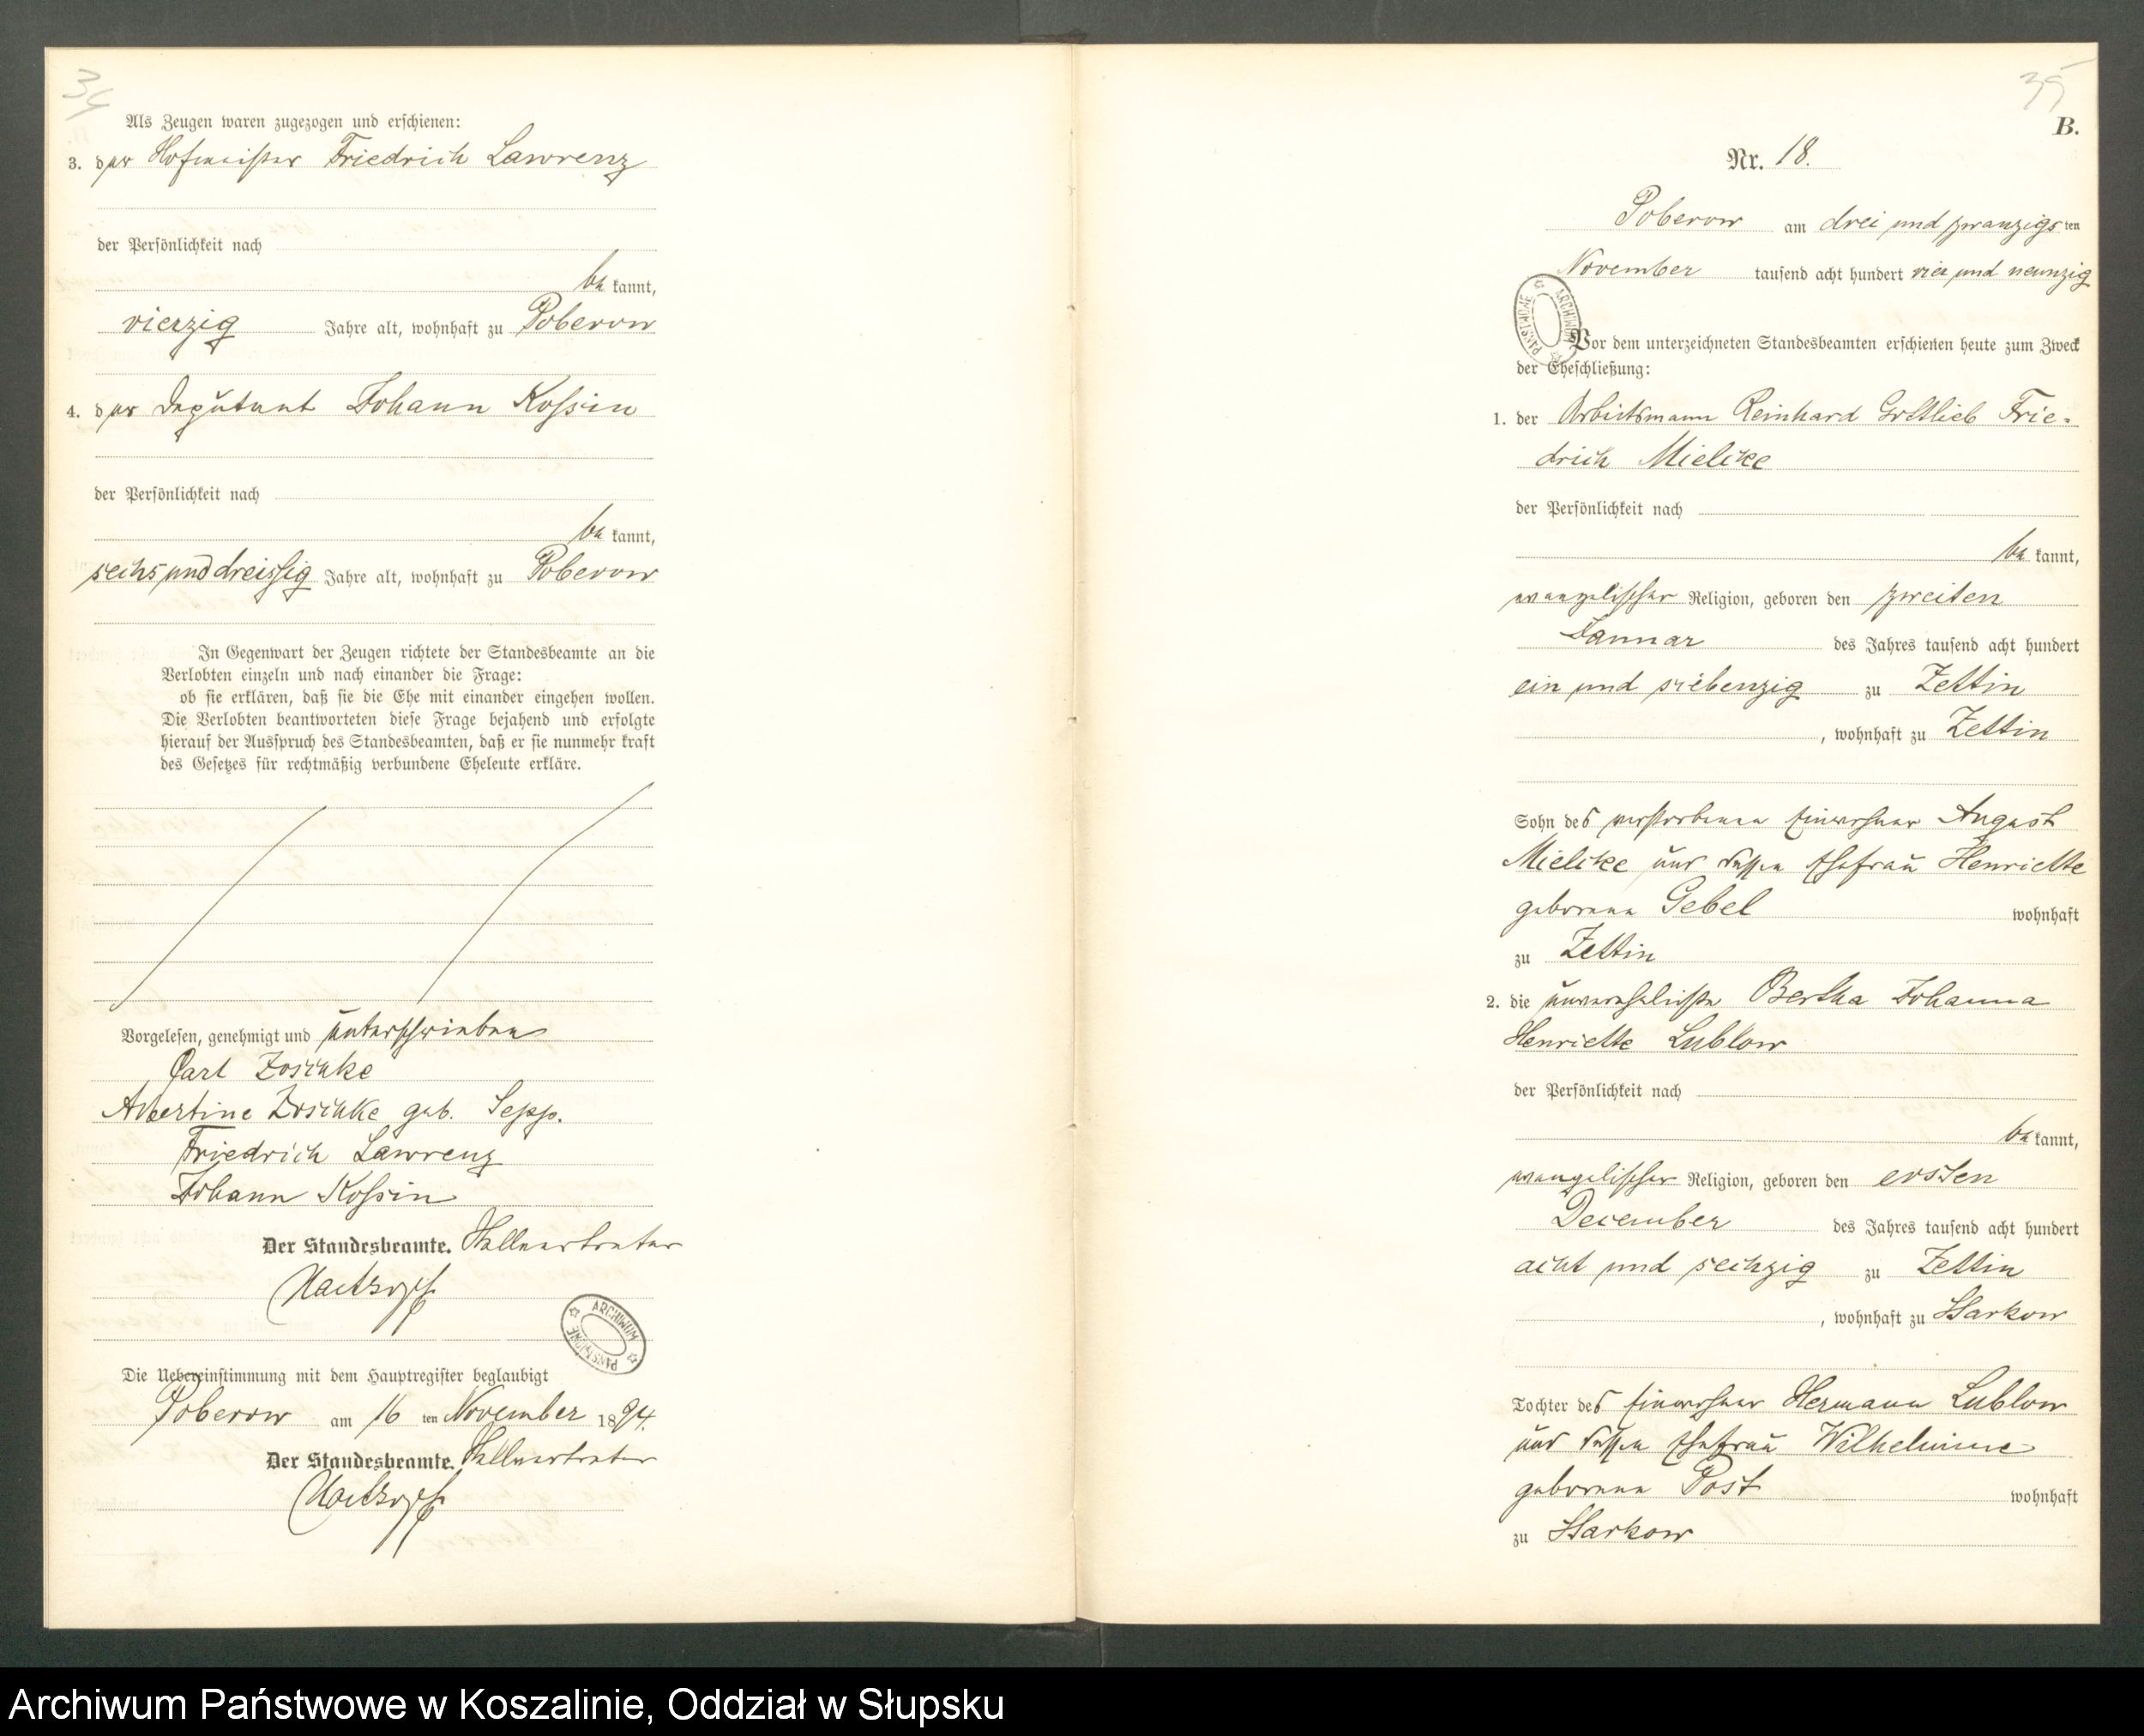 34
Als Zeugen waren zugezogen und erschienen:
3. der Hofmeister Friedrich Lawrenz
der Persönlichkeit nach
be kannt,
vierzig Jahre alt, wohnhaft zu Poberow
4. der Deputant Johann Kossin
der Persönlichkeit nach
be kannt,
sechs und dreissig Jahre alt, wohnhaft zu Poberow
In Gegenwart der Zeugen richtete der Standesbeamte an die
Verlobten einzeln und nach einander die Frage:
ob sie erklären, daß sie die Ehe mit einander eingehen wollen.
Die Verlobten beantworteten diese Frage bejahend und erfolgte
hierauf der Ausspruch des Standesbeamten, daß er sie nunmehr kraft
des Gesetzes für rechtmäßig verbundene Eheleute erkläre.
Vorgelesen, genehmigt und unterschrieben
Carl Zoschke
Albertine Zoschke geb. Sepp.
Friedrich Lawrenz
Johann Kossin
Der Standesbeamte. Stellvertreter
ARCHIWUM PAŃSTWOWE
Die Uebereinstimmung mit dem Hauptregister beglaubigt
Poberow am 16 ten November 1894.
Der Standesbeamte. Stellvertreter
35
B.
Nr. 18.
Poberow am drei und zwanzigs ten
November tausend acht hundert vier und neunzig
ARCHIWUM PAŃSTWOWE
Vor dem unterzeichneten Standesbeamten erschienen heute zum Zweck
der Eheschließung:
1. der Arbeitsmann Reinhard Gottlieb Frie-
drich Mielcke
der Persönlichkeit nach
be kannt,
evangelischer Religion, geboren den zweiten
Januar des Jahres tausend acht hundert
ein und siebenzig zu Zettin
, wohnhaft zu Zettin
Sohn des verstorbenen Einwohner August
Mielcke und dessen Ehefrau Henriette
geborene Gebel wohnhaft
zu Zettin
2. die unverehelichte Bertha Johanna
Henriette Lublow
der Persönlichkeit nach
be kannt,
evangelischer Religion, geboren den ersten
December des Jahres tausend acht hundert
acht und sechzig zu Zettin
, wohnhaft zu Starkow
Tochter des Einwohner Hermann Lublow
und dessen Ehefrau Wilhelmine
geborene Post wohnhaft
zu Starkow
Archiwum Państwowe w Koszalinie, Oddział w Słupsku